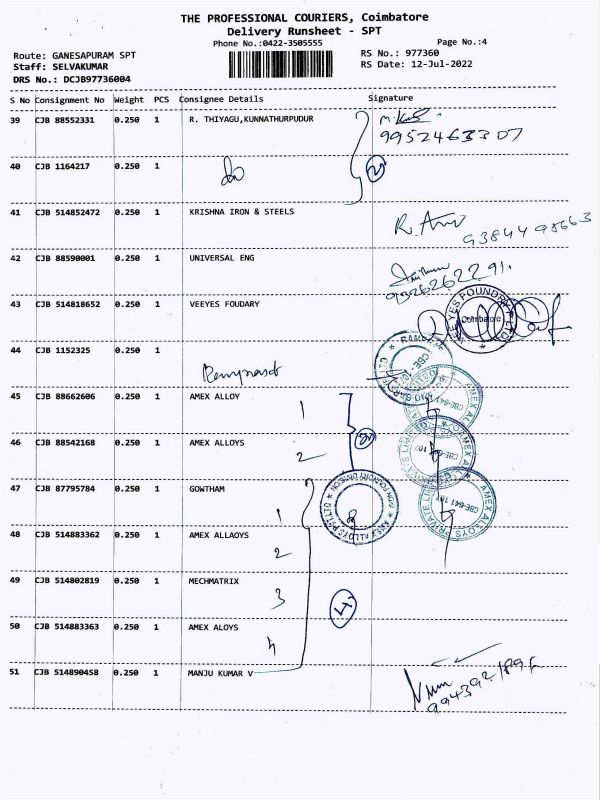 THE PROFESSIONAL COURIERS, Coimbatore
Delivery Runsheet - SPT
Phone No.:0422-3505555
Page No.:4
Route: GANESAPURAM SPT
RS No.: 977360
Staff: SELVAKUMAR
RS Date: 12-Jul-2022
DRS No.: DCJB97736004
S No Consignment No Weight PCS Consignee Details Signature
39 CJB 88552331 0.250 1 R. THIYAGU,KUNNATHURPUDUR
9952463307
40 CJB 1164217 0.250 1 do 2
41 CJB 514852472 0.250 1 KRISHNA IRON & STEELS
9384495663
42 CJB 88590001 0.250 1 UNIVERSAL ENG
9326262291.
43 CJB 514818652 0.250 1 VEEYES FOUDARY
VEEYES FOUNDRY
Coimbatore
44 CJB 1152325 0.250 1
45 CJB 88662606 0.250 1 AMEX ALLOY 1
46 CJB 88542168 0.250 1 AMEX ALLOYS 2
2
47 CJB 87795784 0.250 1 GOWTHAM 1
AMEX ALLOYS PVT LTD
IRON FOUNDRY DIVISION
AMEX ALLOYS PRIVATE LIMITED
CBE-641 107
48 CJB 514883362 0.250 1 AMEX ALLAOYS 2
49 CJB 514802819 0.250 1 MECHMATRIX 3
4
50 CJB 514883363 0.250 1 AMEX ALOYS 4
51 CJB 514890458 0.250 1 MANJU KUMAR V